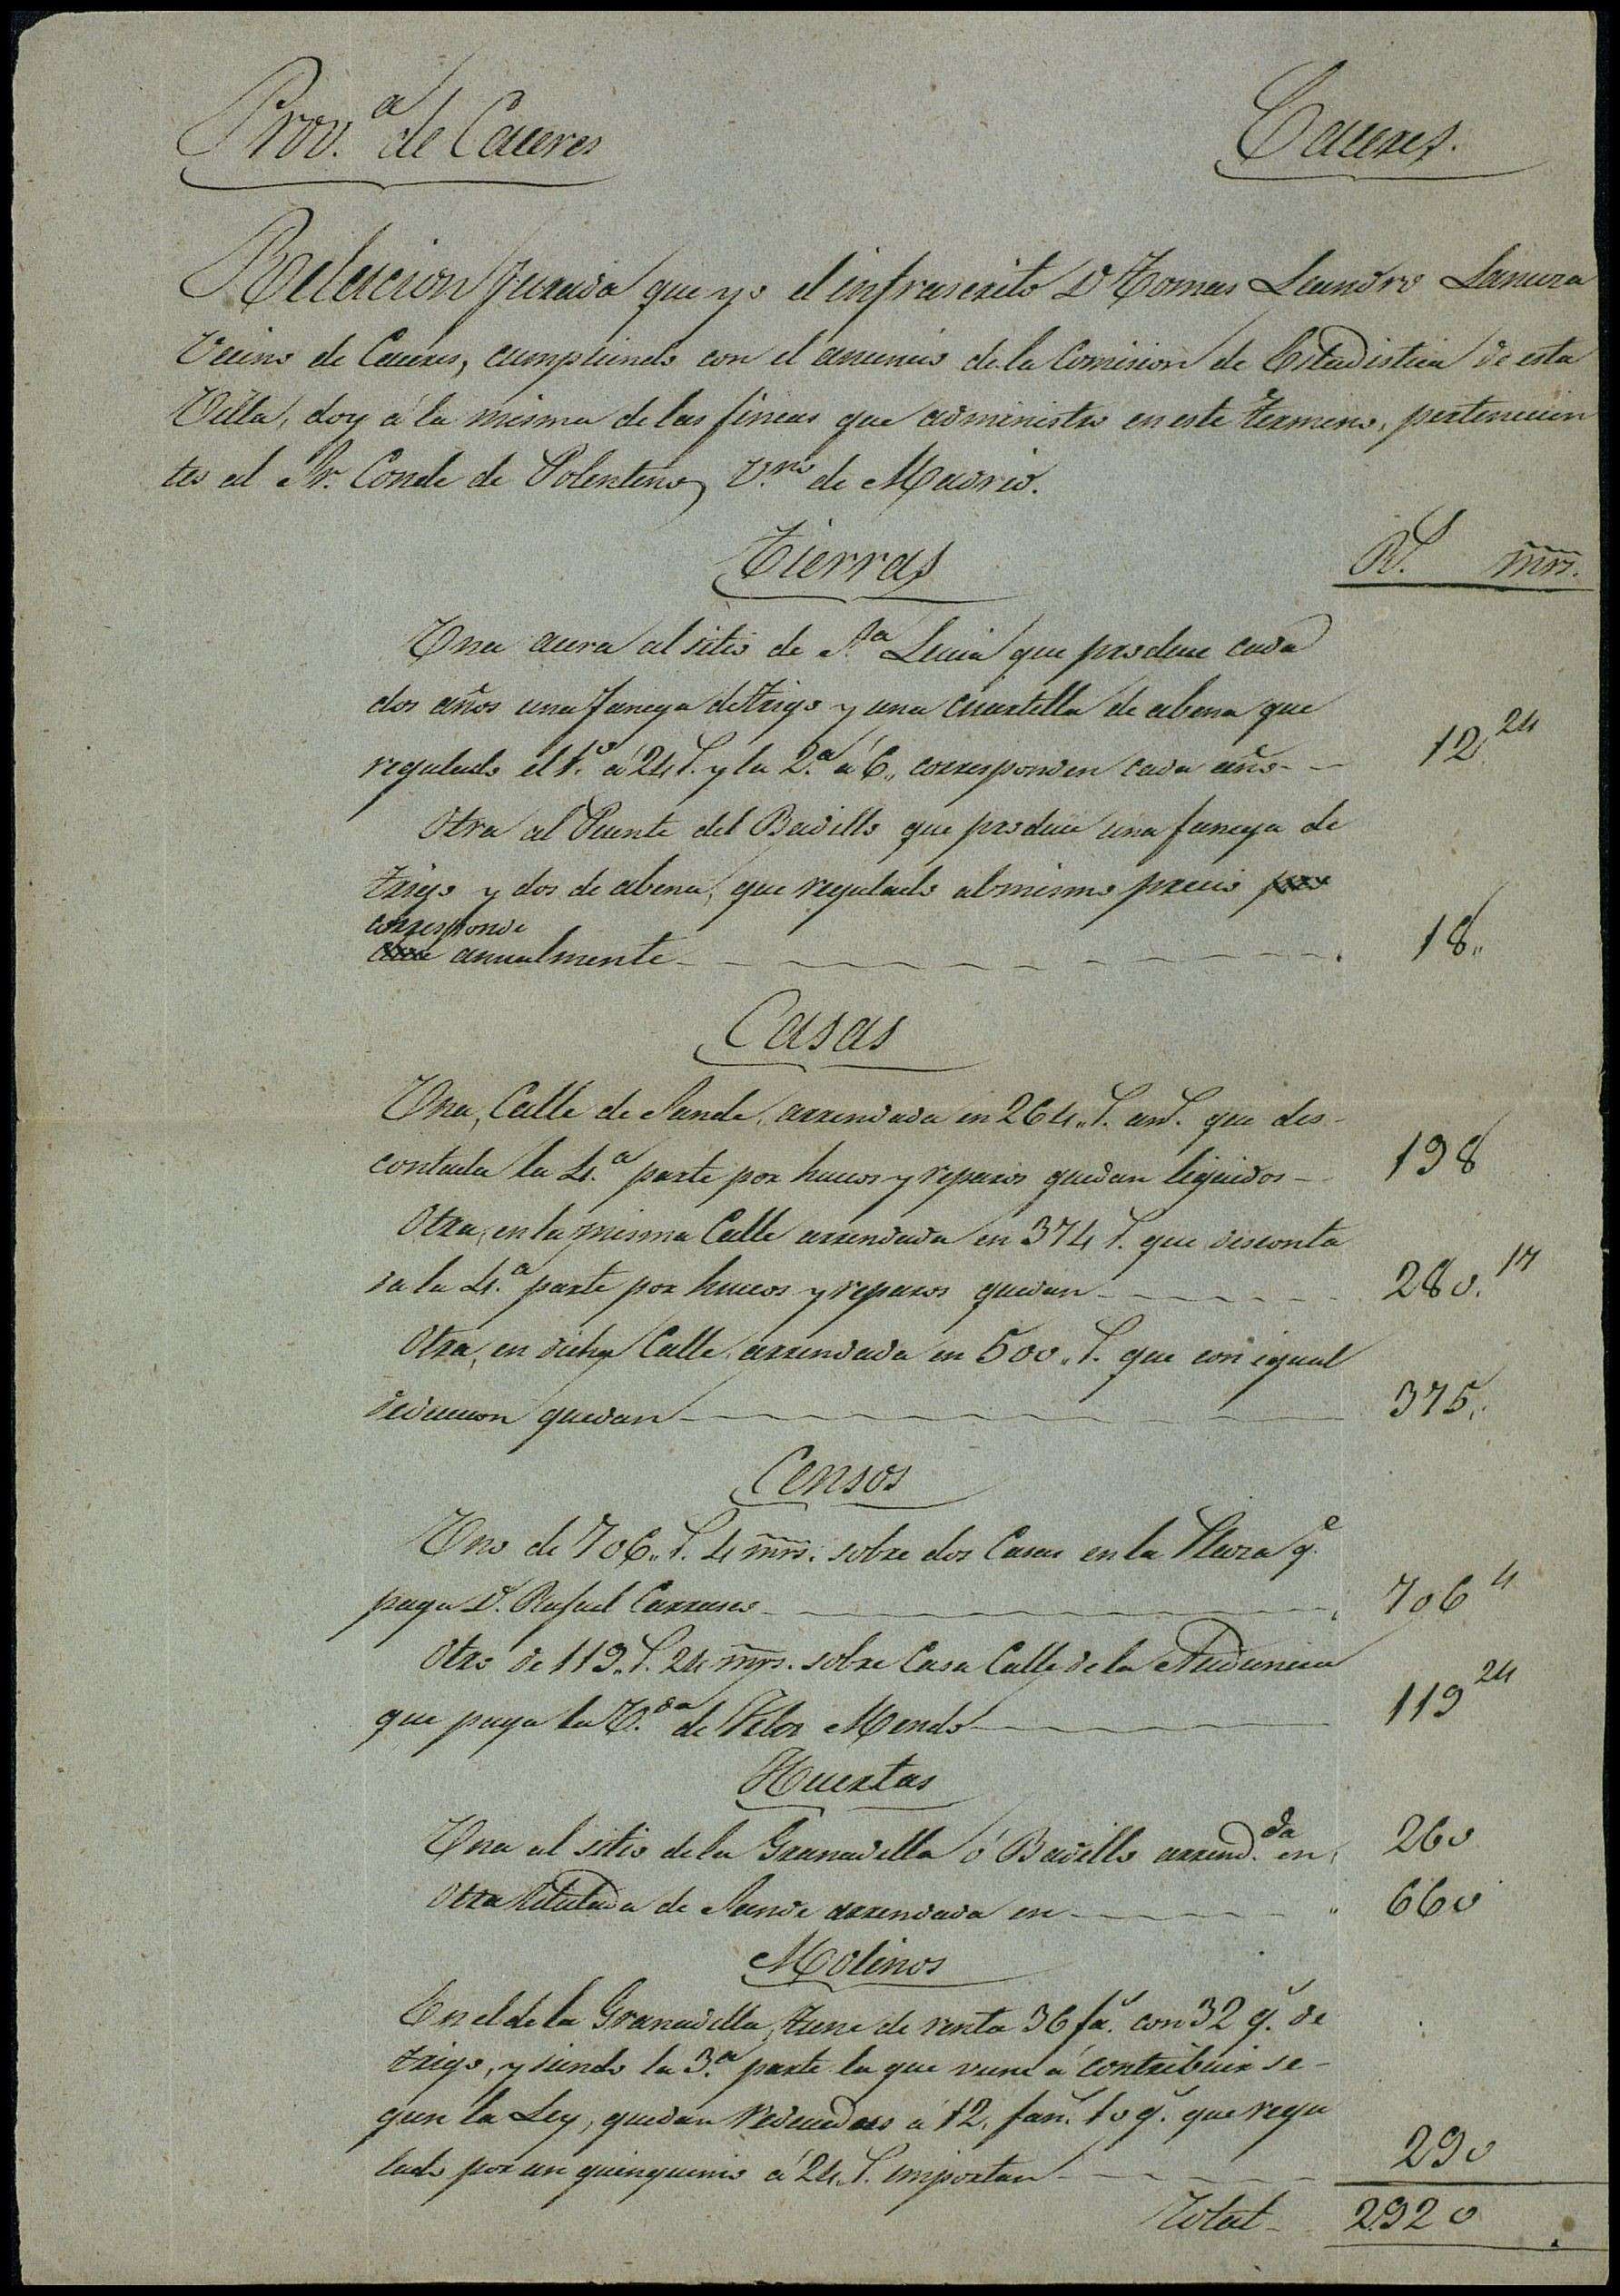 Prov.ª de Caceres
Caceres.
Relacion Jurada que yo el infrascrito D Tomas Leandro Lanuza
Vecino de Caceres, cumpliendo con el anuncio de la Comision de Estadistica de esta
Villa, doy á la misma de las fincas que administro en este termino, pertenecien
tes al Sr. Conde de Polentinos, V.no de Madrid.
Tierras
Rs. mrs.
Una acera al sitio de S.ta Lucia que produce cada
dos años una fanega de trigo y una cuartilla de abena que
regulado el 1.º á 24 rs. y la 2.ª á 6,, corresponden cada año - - 12,,24
Otra al Puente del Badillo que produce una fanega de
trigo y dos de abena, que regulado al mismo precio
corresponde
anualmente - - - - 18,,
Casas
Una, Calle de Sande, arrendada en 264,, rs. an.s que des-
contada la 4.ª parte por huecos y reparos quedan liquidos - - 198
Otra, en la misma Calle arrendada en 374 rs. que desconta
da la 4.ª parte por huecos y reparos quedan - - - 280.17
Otra, en dicha Calle, arrendada en 500,, rs. que con igual
deduccion quedan - - - - 375,,
Censos
Uno de 706,, rs. 4 mrs. sobre dos Casas en la Plaza q.e
paga D. Rafael Carrasco - - - - 706 4
Otro de 119,, rs. 24 mrs. sobre Casa Calle de la Audiencia
que paga la V.da de Velos Mendo - - - 119 24
Huertas
Una al sitio de la Granadilla ó Badillo arrend.da en, 260
Otra titulada de Sande arrendada en - - - - 660
Molinos
En el de la Granadilla, tiene de renta 36 fa.s con 32 q.s de
trigo, y siendo la 3.ª parte la que viene á contribuir se-
gun la Ley, quedan reducidas á 12. fan.s 10 q.s que regu
lado por un quinquenio á 24 rs. importan - - - 290
Total - 2920